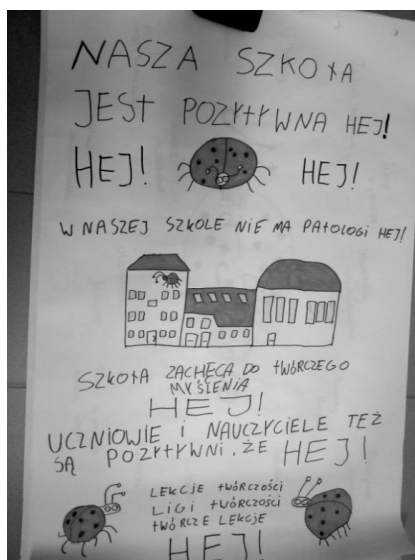 NASZA SZKOŁA
JEST POZYTYWNA HEJ!
HEJ! HEJ!
W NASZEJ SZKOLE NIE MA PATOLOGI HEJ!
SZKOŁA ZACHĘCA DO TWÓRCZEGO
MYŚLENIA
HEJ!
UCZNIOWIE I NAUCZYCIELE TEŻ
SĄ POZYTYWNI. ŻE HEJ!
LEKCJE TWÓRCZOŚCI
LIGI TWÓRCZOŚCI
TWÓRCZE LEKCJE
HEJ!